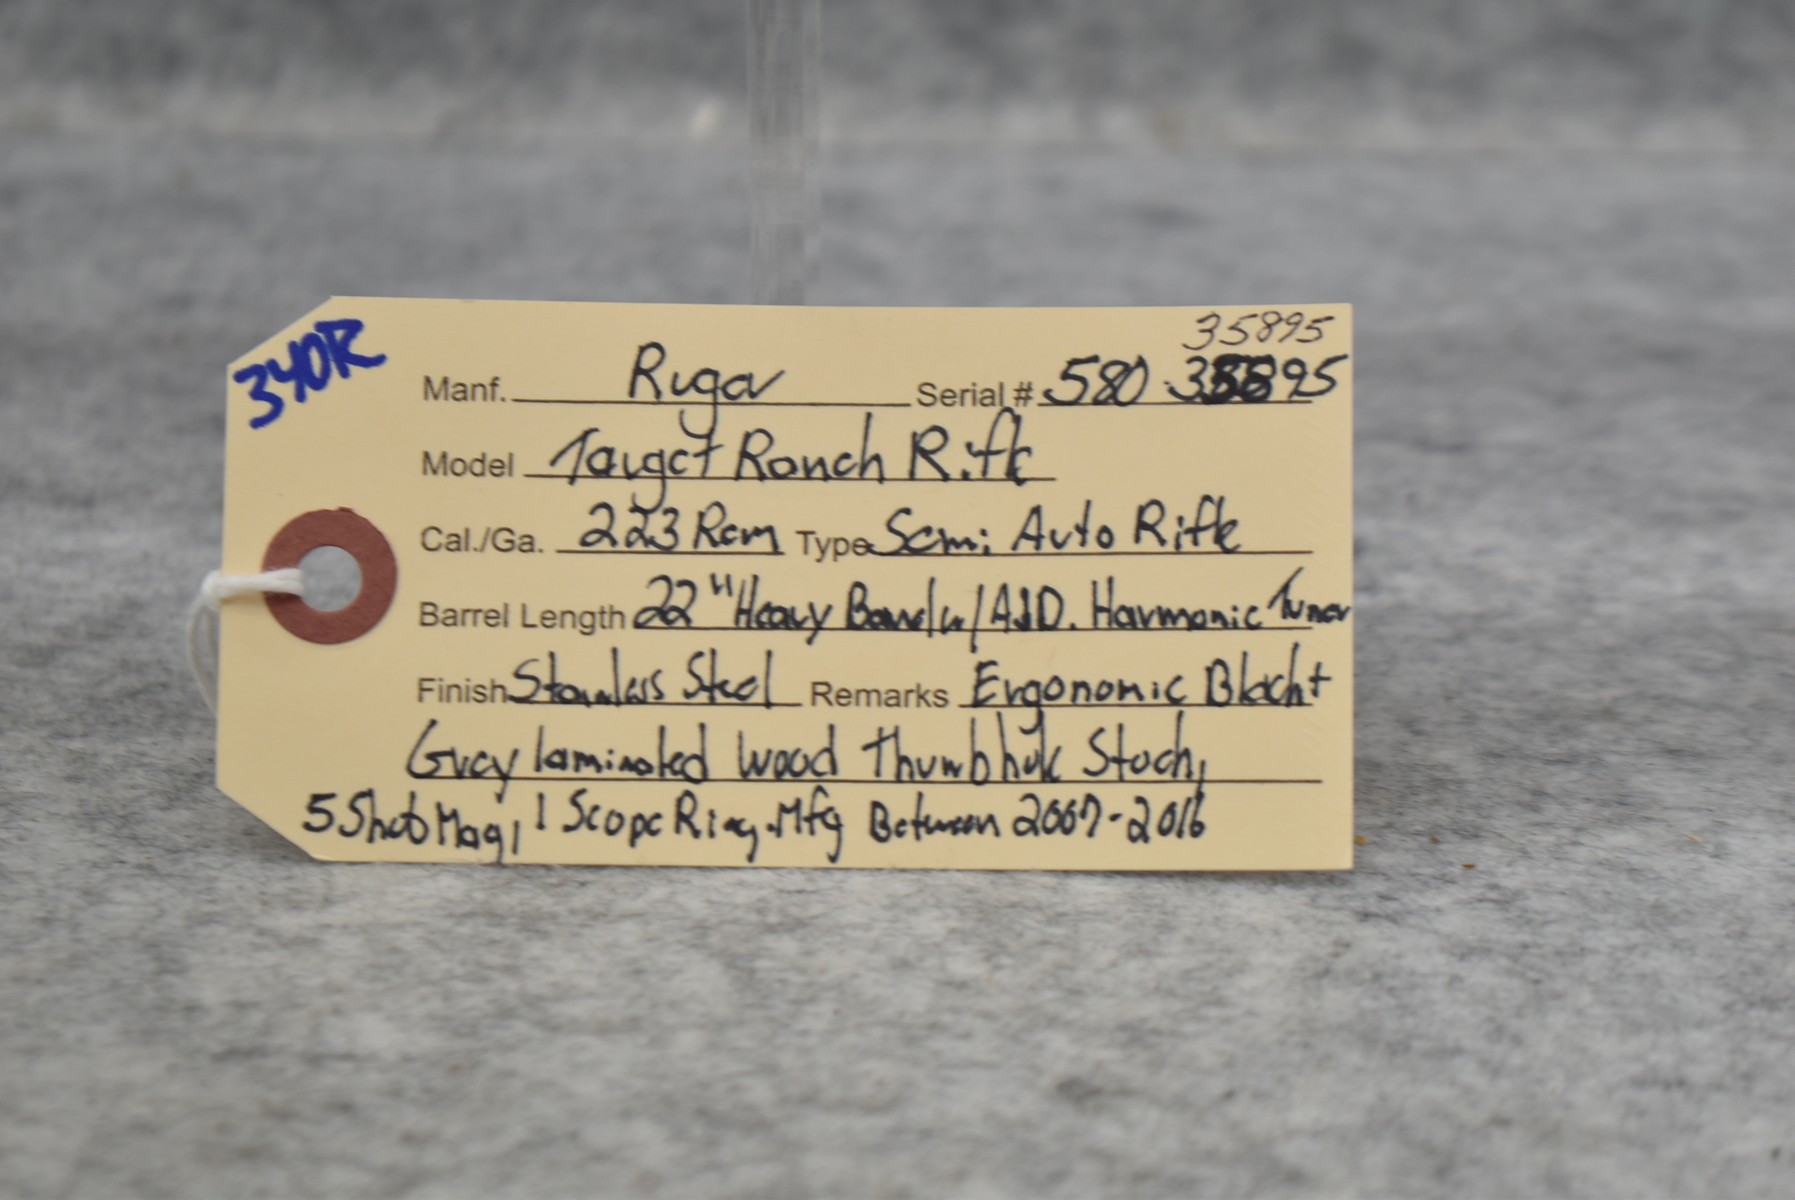 340R
35895
Manf. Ruger Serial # 580 35895
Model Target Ranch Rifle
Cal./Ga. 223 Rem Type Semi Auto Rifle
Barrel Length 22" Heavy Barrel w/ AJD. Harmonic Tuner
Finish Stainless Steel Remarks Ergonomic Black +
Grey laminated Wood Thumbhole Stock,
5 Shot Mag, 1 Scope Ring. Mfg Between 2007-2016